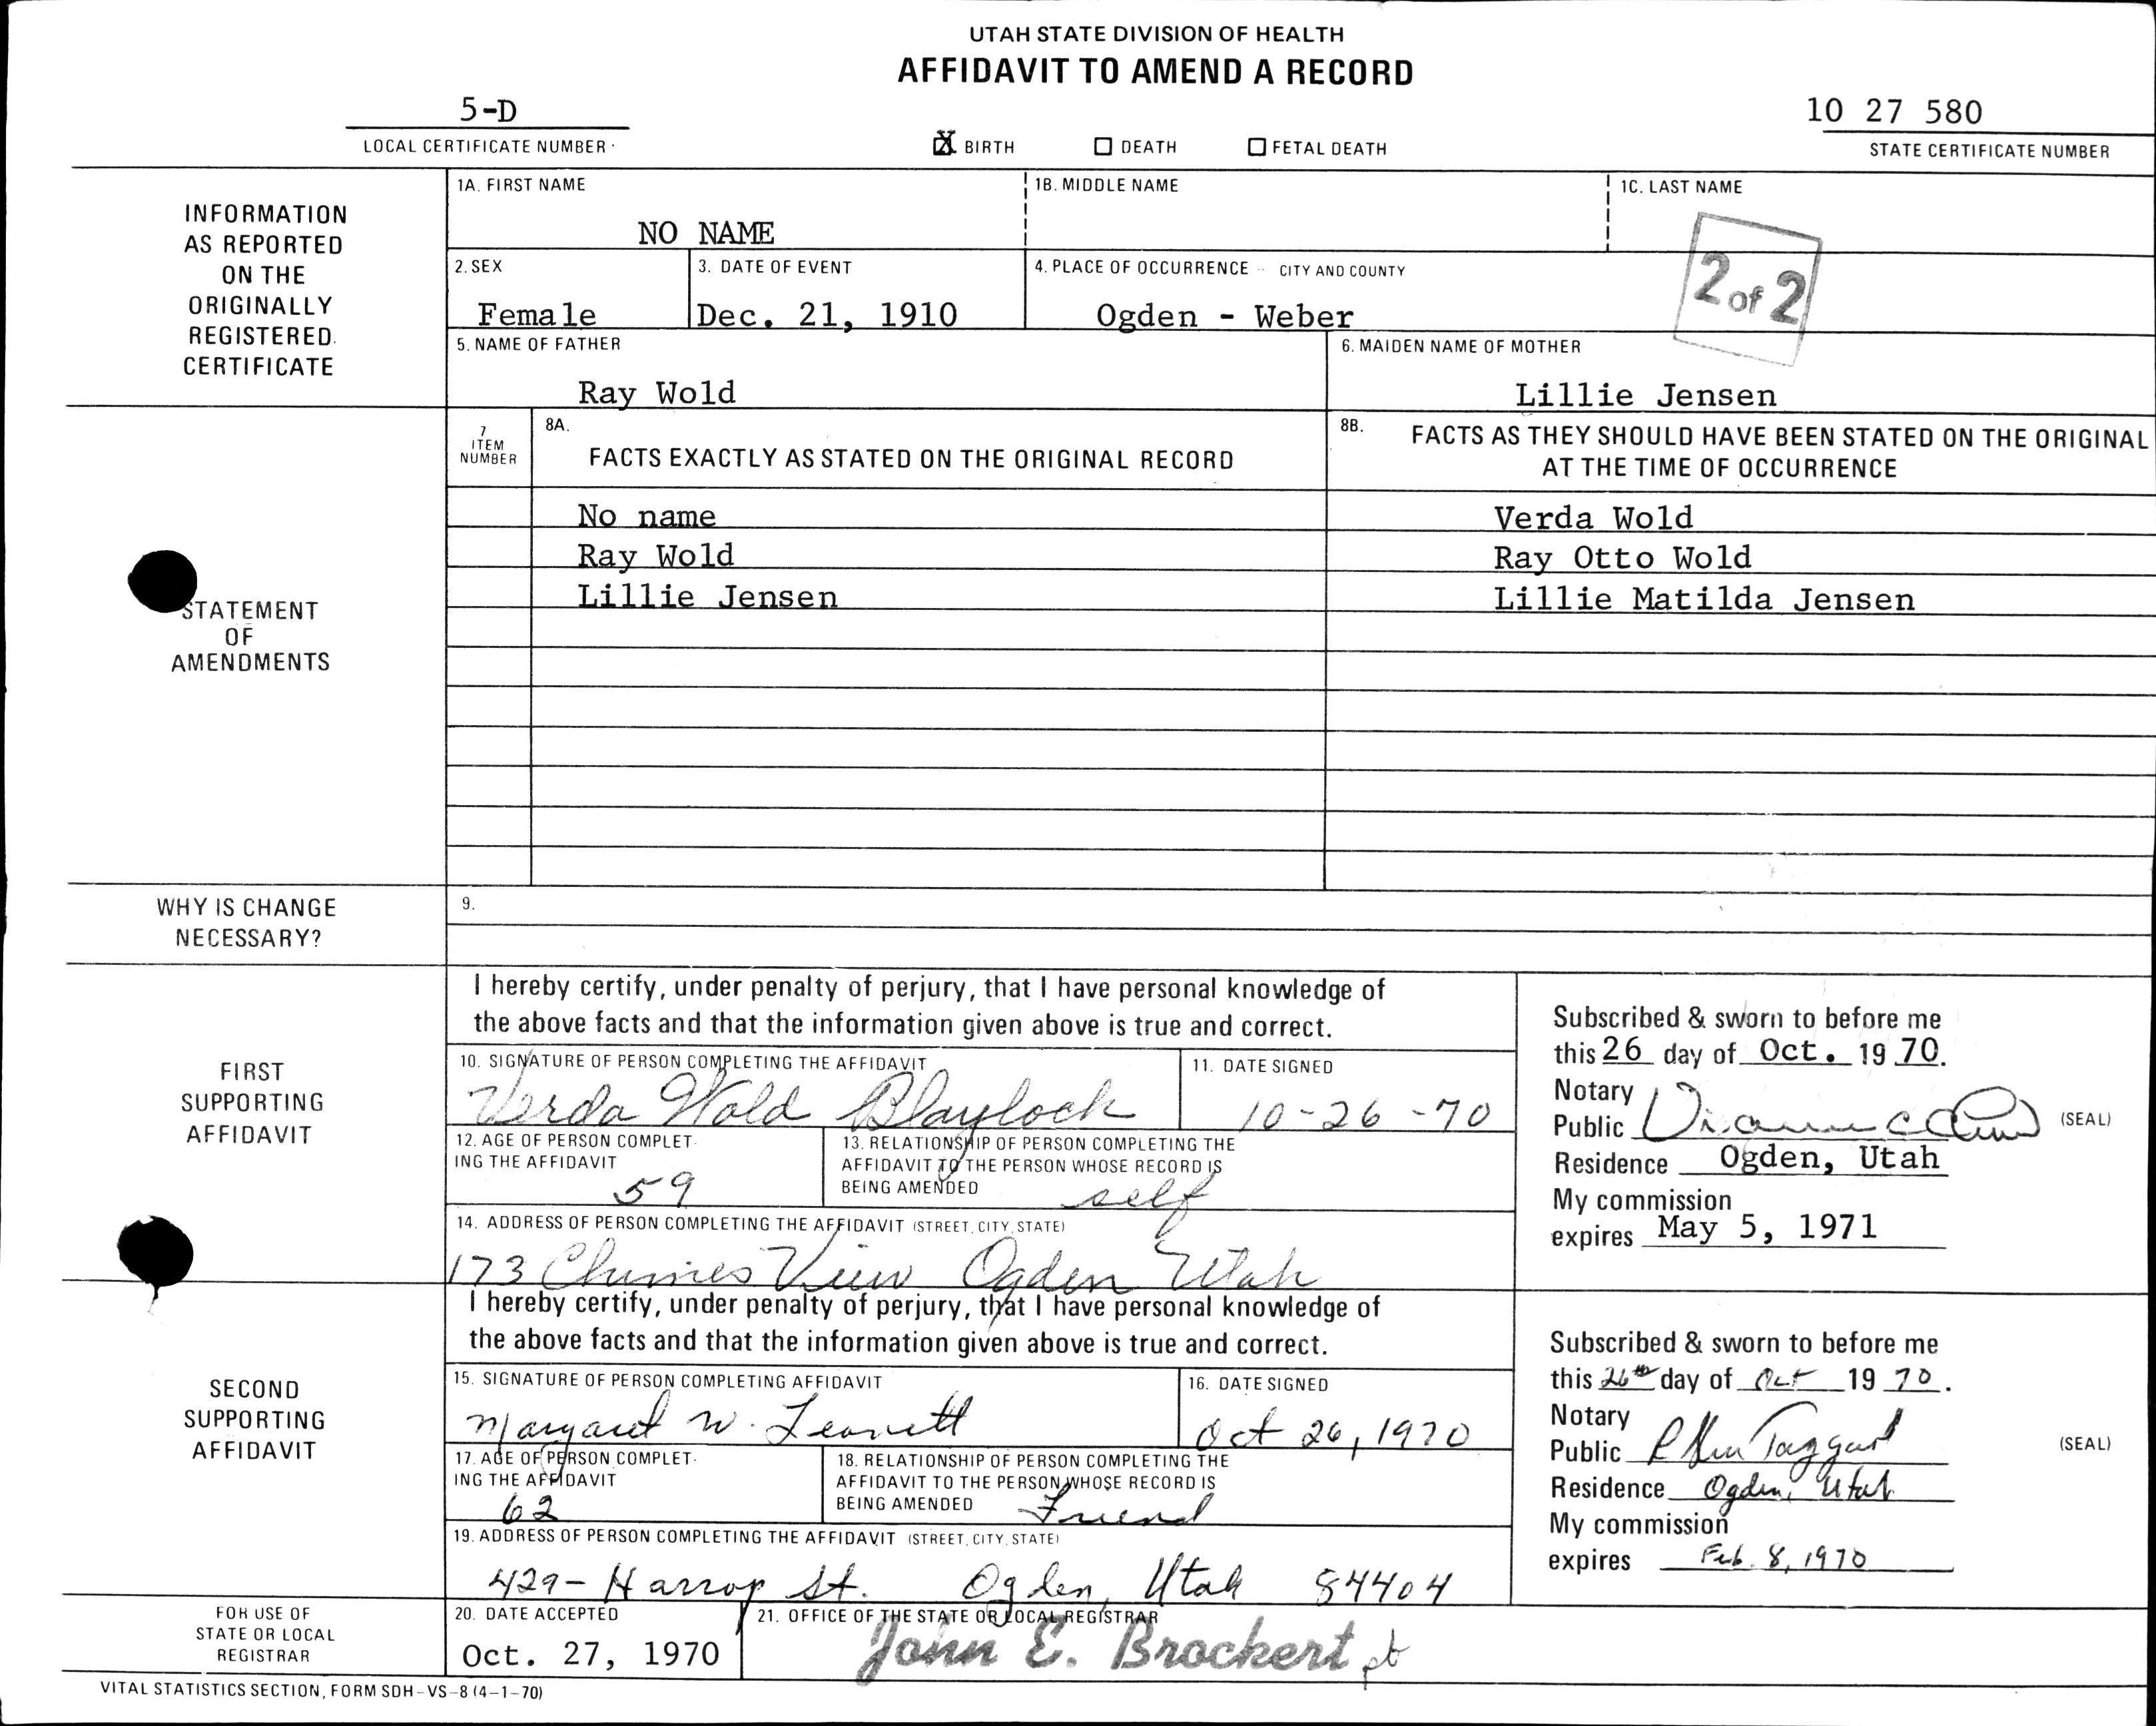 UTAH STATE DIVISION OF HEALTH
AFFIDAVIT TO AMEND A RECORD
5-D
LOCAL CERTIFICATE NUMBER
X BIRTH DEATH FETAL DEATH
10 27 580
STATE CERTIFICATE NUMBER
INFORMATION
AS REPORTED
ON THE
ORIGINALLY
REGISTERED
CERTIFICATE
1A. FIRST NAME
1B. MIDDLE NAME
1C. LAST NAME
NO NAME
2 of 2
2. SEX
Female
3. DATE OF EVENT
Dec. 21, 1910
4. PLACE OF OCCURRENCE - CITY AND COUNTY
Ogden - Weber
5. NAME OF FATHER
Ray Wold
6. MAIDEN NAME OF MOTHER
Lillie Jensen
STATEMENT
OF
AMENDMENTS
7
ITEM
NUMBER
8A.
FACTS EXACTLY AS STATED ON THE ORIGINAL RECORD
8B.
FACTS AS THEY SHOULD HAVE BEEN STATED ON THE ORIGINAL
AT THE TIME OF OCCURRENCE
No name Verda Wold
Ray Wold Ray Otto Wold
Lillie Jensen Lillie Matilda Jensen
WHY IS CHANGE
NECESSARY?
9.
FIRST
SUPPORTING
AFFIDAVIT
I hereby certify, under penalty of perjury, that I have personal knowledge of
the above facts and that the information given above is true and correct.
10. SIGNATURE OF PERSON COMPLETING THE AFFIDAVIT
Verda Wold Blaylock
11. DATE SIGNED
10-26-70
12. AGE OF PERSON COMPLET-
ING THE AFFIDAVIT
59
13. RELATIONSHIP OF PERSON COMPLETING THE
AFFIDAVIT TO THE PERSON WHOSE RECORD IS
BEING AMENDED
self
14. ADDRESS OF PERSON COMPLETING THE AFFIDAVIT (STREET, CITY, STATE)
173 Chimes View Ogden Utah
Subscribed & sworn to before me
this 26 day of Oct. 19 70.
Notary
Public
(SEAL)
Residence Ogden, Utah
My commission
expires May 5, 1971
SECOND
SUPPORTING
AFFIDAVIT
I hereby certify, under penalty of perjury, that I have personal knowledge of
the above facts and that the information given above is true and correct.
15. SIGNATURE OF PERSON COMPLETING AFFIDAVIT
Margaret W.
16. DATE SIGNED
Oct 26, 1970
17. AGE OF PERSON COMPLET-
ING THE AFFIDAVIT
62
18. RELATIONSHIP OF PERSON COMPLETING THE
AFFIDAVIT TO THE PERSON WHOSE RECORD IS
BEING AMENDED
Friend
19. ADDRESS OF PERSON COMPLETING THE AFFIDAVIT (STREET, CITY, STATE)
429 - Harrop St. Ogden, Utah 84404
Subscribed & sworn to before me
this 26th day of Oct 19 70.
Notary
Public Taggart
(SEAL)
Residence Ogden, Utah
My commission
expires Feb. 8, 1970
FOR USE OF
STATE OR LOCAL
REGISTRAR
20. DATE ACCEPTED
Oct. 27, 1970
21. OFFICE OF THE STATE OR LOCAL REGISTRAR
John E. Brockert
VITAL STATISTICS SECTION, FORM SDH-VS-8 (4-1-70)